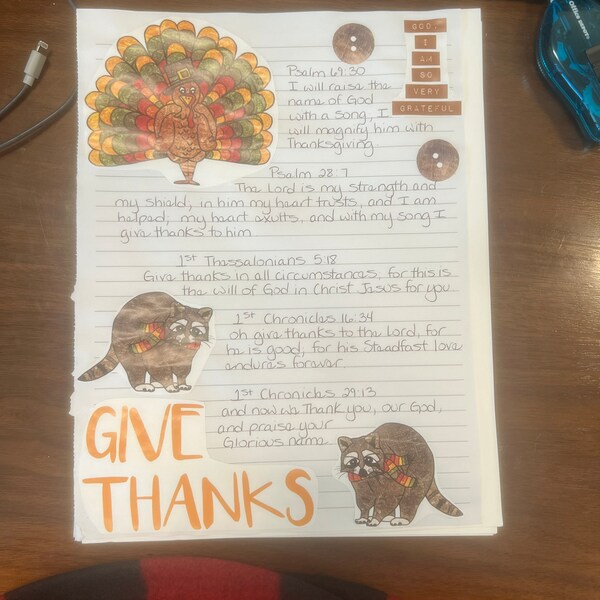 GOD
I
AM
SO
VERY
GRATEFUL
Psalm 69:30
I will raise the
name of God
with a song, I
will magnify him with
Thanksgiving
Psalm 28:7
The Lord is my strength and
my shield, in him my heart trusts, and I am
helped; my heart exults, and with my song I
give thanks to him
1st Thessalonians 5:18
Give thanks in all circumstances, for this is
the will of God in Christ Jesus for you
1st Chronicles 16:34
oh give thanks to the Lord, for
he is good; for his Steadfast love
endures forever.
1st Chronicles 29:13
and now we Thank you, our God,
and praise your
Glorious name
GIVE
THANKS
Office DEPOT